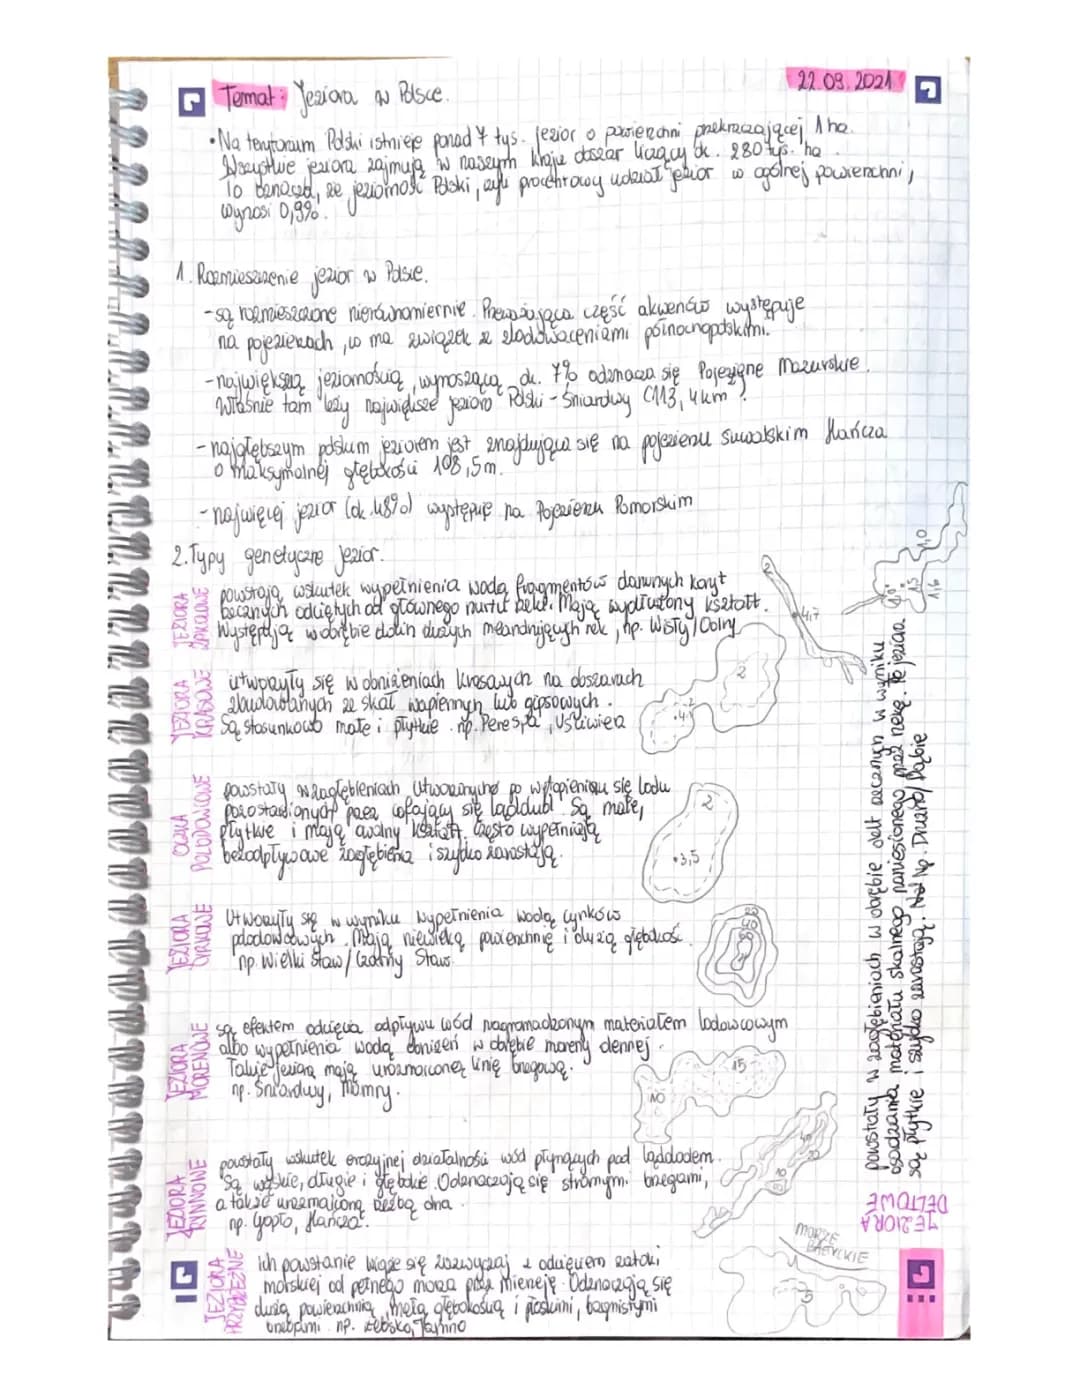 Temat: Jeziora w Polsce.
22.09.2021
• Na terytorium Polski istnieje ponad 7 tys. jezior o powierzchni przekraczającej 1 ha.
Wszystkie jeziora zajmują w naszym kraju obszar liczący ok. 280 tys. ha.
To oznacza, że jeziorność Polski, czyli procentowy udział jezior w ogólnej powierzchni,
wynosi 0,9%.
1. Rozmieszczenie jezior w Polsce.
- są rozmieszczone nierównomiernie. Przeważająca część akwenów występuje
na pojezierzach, co ma związek ze zlodowaceniami północnopolskimi.
- największą jeziornością, wynoszącą ok. 7% odznacza się Pojezierze Mazurskie.
Właśnie tam leży największe jezioro Polski - Śniardwy (113,4 km²).
- najgłębszym polskim jeziorem jest znajdująca się na pojezierzu suwalskim Hańcza
o maksymalnej głębokości 108,5m.
- najwięcej jezior (ok. 48%) występuje na Pojezierzu Pomorskim
2. Typy genetyczne jezior.
JEZIORA
ZAKOLOWE
powstają wskutek wypełnienia wodą fragmentów dawnych koryt
rzecznych odciętych od głównego nurtu rzeki. Mają wydłużony kształt.
Występują w obrębie dolin dużych meandrujących rzek, np. Wisły / Dolny
2
4,7
JEZIORA
KRASOWE
utworzyły się w obniżeniach krasowych na obszarach
zbudowanych ze skał wapiennych lub gipsowych.
Są stosunkowo małe i płytkie. np. Perespa, Uściwierz
2
4,4
OCZKA
POLODOWCOWE
powstały w zagłębieniach utworzonych po wytopieniu się lodu
pozostawionych przez cofający się lądolód. Są małe,
płytkie i mają owalny kształt. Często wypełniają
bezodpływowe zagłębienia i szybko zarastają.
2
3,5
JEZIORA
CYRKOWE
Utworzyły się w wyniku wypełnienia wodą cyrków
polodowcowych. Mają niewielką powierzchnię i dużą głębokość.
np. Wielki Staw / Czarny Staw
JEZIORA
MORENOWE
są efektem odcięcia odpływu wód nagromadzonym materiałem lodowcowym
albo wypełnienia wodą obniżeń w obrębie moreny dennej.
Takie jeziora mają urozmaiconą linię brzegową.
np. Śniardwy, Mamry.
15
JEZIORA
RYNNOWE
powstały wskutek erozyjnej działalności wód płynących pod lądolodem.
Są wąskie, długie i głębokie. Odznaczają się stromymi brzegami,
a także urozmaiconą rzeźbą dna.
np. Gopło, Hańcza.
JEZIORA
PRZYBRZEŻNE
ich powstanie wiąże się zazwyczaj z odcięciem zatoki
morskiej od pełnego morza przez mierzeję. Odznaczają się
dużą powierzchnią, małą głębokością i płaskimi, bagnistymi
brzegami. np. Łebsko, Jamno
MORZE
BAŁTYCKIE
JEZIORA
DELTOWE
powstały w zagłębieniach w obrębie delt rzecznych w wyniku
osadzania materiału skalnego naniesionego przez rzekę. Te jeziora
są płytkie i szybko zarastają. np. Druzno / Dąbie
1,0
1,5